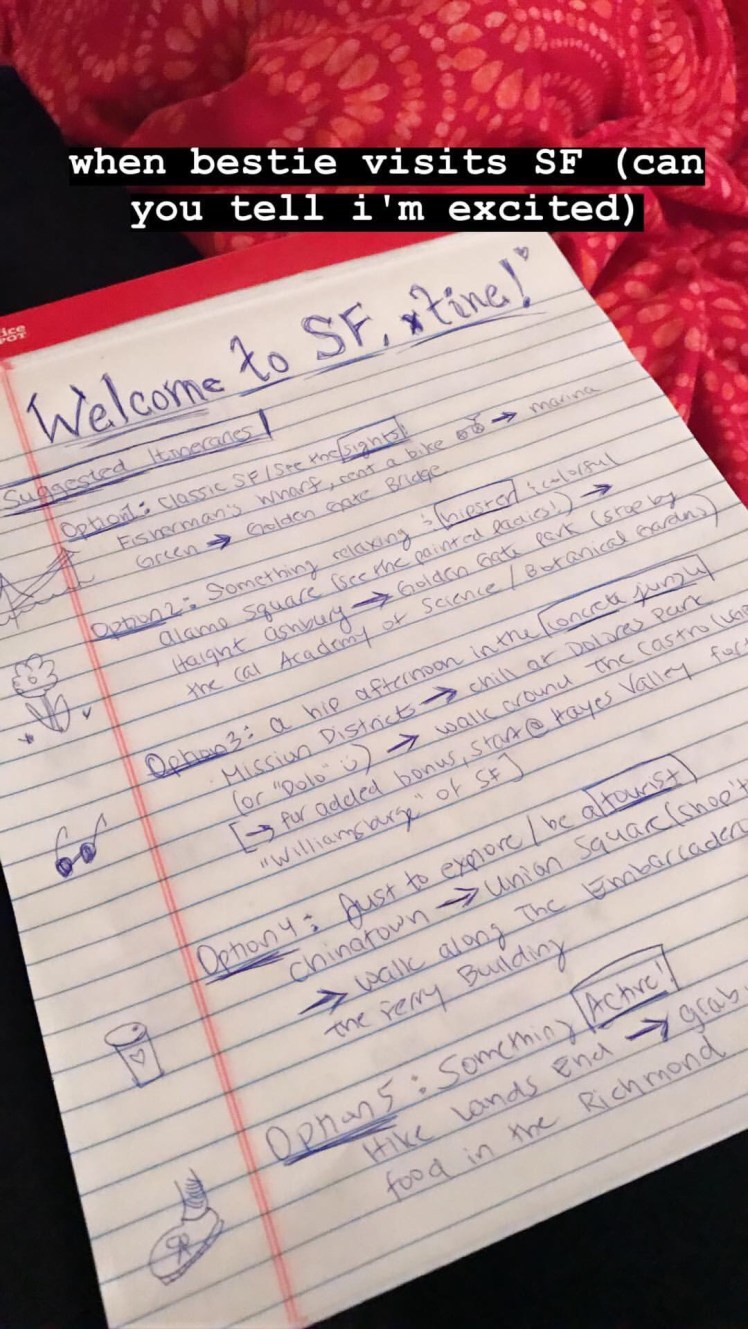 when bestie visits SF (can
you tell i'm excited)
ice
POT
Welcome to SF, xtine!
Suggested Itineraries!
Option 1: Classic SF/See the sights!
Fisherman's Wharf, rent a bike → marina
Green → Golden Gate Bridge
Option 2: Something relaxing & hipster & colorful
Alamo Square (see the painted ladies!) →
Haight Ashbury → Golden Gate Park (stop by
the Cal Academy of Science / Botanical Gardens)
Option 3: A hip afternoon in the concrete jungle
Mission Districts → chill at Dolores Park
(or "Dolo" ü) → walk around The Castro
[→ for added bonus, start @ Hayes Valley for
"Williamsburg" of SF]
Option 4: Just to explore / be a tourist
Chinatown → Union Square (shop
→ walk along The Embarcadero
the Ferry Building
Option 5: Something Active!
Hike Lands End → grab
food in the Richmond